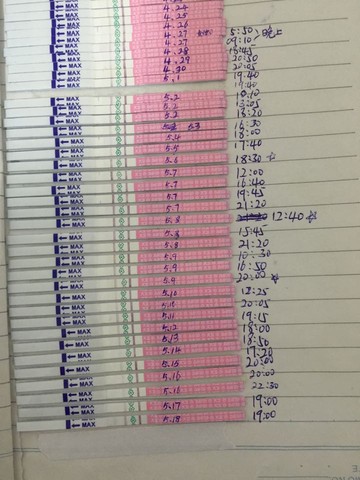 MAX 4.24
MAX 4.25
MAX 4.26
MAX 4.27 5:50
MAX 4.27 09:10
MAX 4.28 16:45
MAX 4.29 20:50
MAX 4.30 20:05
MAX 5.1 19:40
MAX 5.2
MAX 5.2 13:05
MAX 5.2 18:20
MAX 5.3 16:30
MAX 5.4 18:00
MAX 5.5 17:40
MAX 5.6 18:30
MAX 5.7 12:00
MAX 5.7 16:40
MAX 5.7 19:45
MAX 5.7 21:20
MAX 5.8 12:40
MAX 5.8 15:45
MAX 5.8 21:20
MAX 5.9 10:30
MAX 5.9 16:50
MAX 5.9 20:00
MAX 5.10 12:25
MAX 5.10 20:05
MAX 5.11 19:15
MAX 5.12 18:00
MAX 5.13 18:50
MAX 5.14 19:20
MAX 5.15 20:00
MAX 5.16 20:00
MAX 5.16 22:30
MAX 5.17 19:00
MAX 5.18 19:00